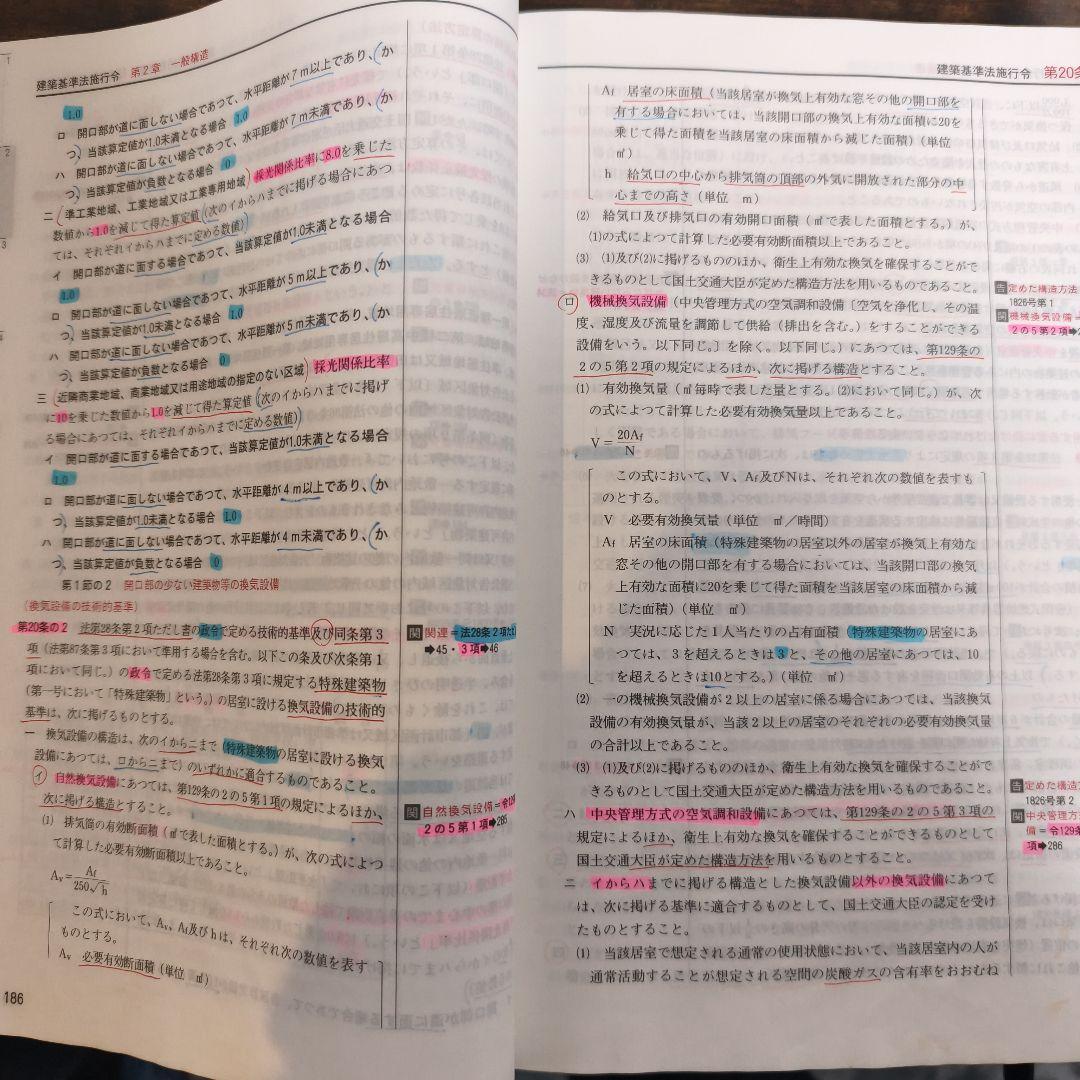 建築基準法施行令 第2章 一般構造
1.0
ロ 開口部が道に面しない場合であつて、水平距離が7m以上であり、(か
つ、)当該算定値が1.0未満となる場合 1.0
ハ 開口部が道に面しない場合であつて、水平距離が7m未満であり、(か
つ、)当該算定値が負数となる場合 0
二 (準工業地域、工業地域又は工業専用地域) 採光関係比率に8.0を乗じた
数値から1.0を減じて得た算定値(次のイからハまでに掲げる場合にあつ
ては、それぞれイからハまでに定める数値)
イ 開口部が道に面する場合であつて、当該算定値が1.0未満となる場合
1.0
ロ 開口部が道に面しない場合であつて、水平距離が5m以上であり、(か
つ、)当該算定値が1.0未満となる場合 1.0
ハ 開口部が道に面しない場合であつて、水平距離が5m未満であり、(か
つ、)当該算定値が負数となる場合 0
三 (近隣商業地域、商業地域又は用途地域の指定のない区域) 採光関係比率
に10を乗じた数値から1.0を減じて得た算定値(次のイからハまでに掲げ
る場合にあつては、それぞれイからハまでに定める数値)
イ 開口部が道に面する場合であつて、当該算定値が1.0未満となる場合
1.0
ロ 開口部が道に面しない場合であつて、水平距離が4m以上であり、(か
つ、)当該算定値が1.0未満となる場合 1.0
ハ 開口部が道に面しない場合であつて、水平距離が4m未満であり、(か
つ、)当該算定値が負数となる場合 0
第1節の2 開口部の少ない建築物等の換気設備
(換気設備の技術的基準)
第20条の2 法第28条第2項ただし書の政令で定める技術的基準及び同条第3
項(法第87条第3項において準用する場合を含む。以下この条及び次条第1
項において同じ。)の政令で定める法第28条第3項に規定する特殊建築物
(第一号において「特殊建築物」という。)の居室に設ける換気設備の技術的
基準は、次に掲げるものとする。
一 換気設備の構造は、次のイからニまで(特殊建築物の居室に設ける換気
設備にあつては、ロからニまで)のいずれかに適合するものであること。
イ 自然換気設備にあつては、第129条の2の5第1項の規定によるほか、
次に掲げる構造とすること。
(1) 排気筒の有効断面積(㎡で表した面積とする。)が、次の式によつ
て計算した必要有効断面積以上であること。
Av=Af/250√h
この式において、Av、Af及びhは、それぞれ次の数値を表す
ものとする。
Av 必要有効断面積(単位 ㎡)
関 関連=法28条2項ただ
➡45・3項➡46
関 自然換気設備=令129
2の5第1項➡285
186
建築基準法施行令 第20条
Af 居室の床面積(当該居室が換気上有効な窓その他の開口部を
有する場合においては、当該開口部の換気上有効な面積に20を
乗じて得た面積を当該居室の床面積から減じた面積)(単位
㎡)
h 給気口の中心から排気筒の頂部の外気に開放された部分の中
心までの高さ(単位 m)
(2) 給気口及び排気口の有効開口面積(㎡で表した面積とする。)が、
(1)の式によつて計算した必要有効断面積以上であること。
(3) (1)及び(2)に掲げるもののほか、衛生上有効な換気を確保することがで
きるものとして国土交通大臣が定めた構造方法を用いるものであること。
ロ 機械換気設備(中央管理方式の空気調和設備〔空気を浄化し、その温
度、湿度及び流量を調節して供給(排出を含む。)をすることができる
設備をいう。以下同じ。〕を除く。以下同じ。)にあつては、第129条の
2の5第2項の規定によるほか、次に掲げる構造とすること。
(1) 有効換気量(㎥毎時で表した量とする。(2)において同じ。)が、次
の式によつて計算した必要有効換気量以上であること。
V=20Af/N
この式において、V、Af及びNは、それぞれ次の数値を表すも
のとする。
V 必要有効換気量(単位 ㎥/時間)
Af 居室の床面積(特殊建築物の居室以外の居室が換気上有効な
窓その他の開口部を有する場合においては、当該開口部の換気
上有効な面積に20を乗じて得た面積を当該居室の床面積から減
じた面積)(単位 ㎡)
N 実況に応じた1人当たりの占有面積(特殊建築物の居室にあ
つては、3を超えるときは3と、その他の居室にあつては、10
を超えるときは10とする。)(単位 ㎡)
(2) 一の機械換気設備が2以上の居室に係る場合にあつては、当該換気
設備の有効換気量が、当該2以上の居室のそれぞれの必要有効換気量
の合計以上であること。
(3) (1)及び(2)に掲げるもののほか、衛生上有効な換気を確保することがで
きるものとして国土交通大臣が定めた構造方法を用いるものであること。
ハ 中央管理方式の空気調和設備にあつては、第129条の2の5第3項の
規定によるほか、衛生上有効な換気を確保することができるものとして
国土交通大臣が定めた構造方法を用いるものとすること。
ニ イからハまでに掲げる構造とした換気設備以外の換気設備にあつて
は、次に掲げる基準に適合するものとして、国土交通大臣の認定を受け
たものとすること。
(1) 当該居室で想定される通常の使用状態において、当該居室内の人が
通常活動することが想定される空間の炭酸ガスの含有率をおおむね
告 定めた構造方法
1826号第1
関 機械換気設備=
2の5第2項➡
告 定めた構造方法
1826号第2
関 中央管理方
備=令129条
項➡286